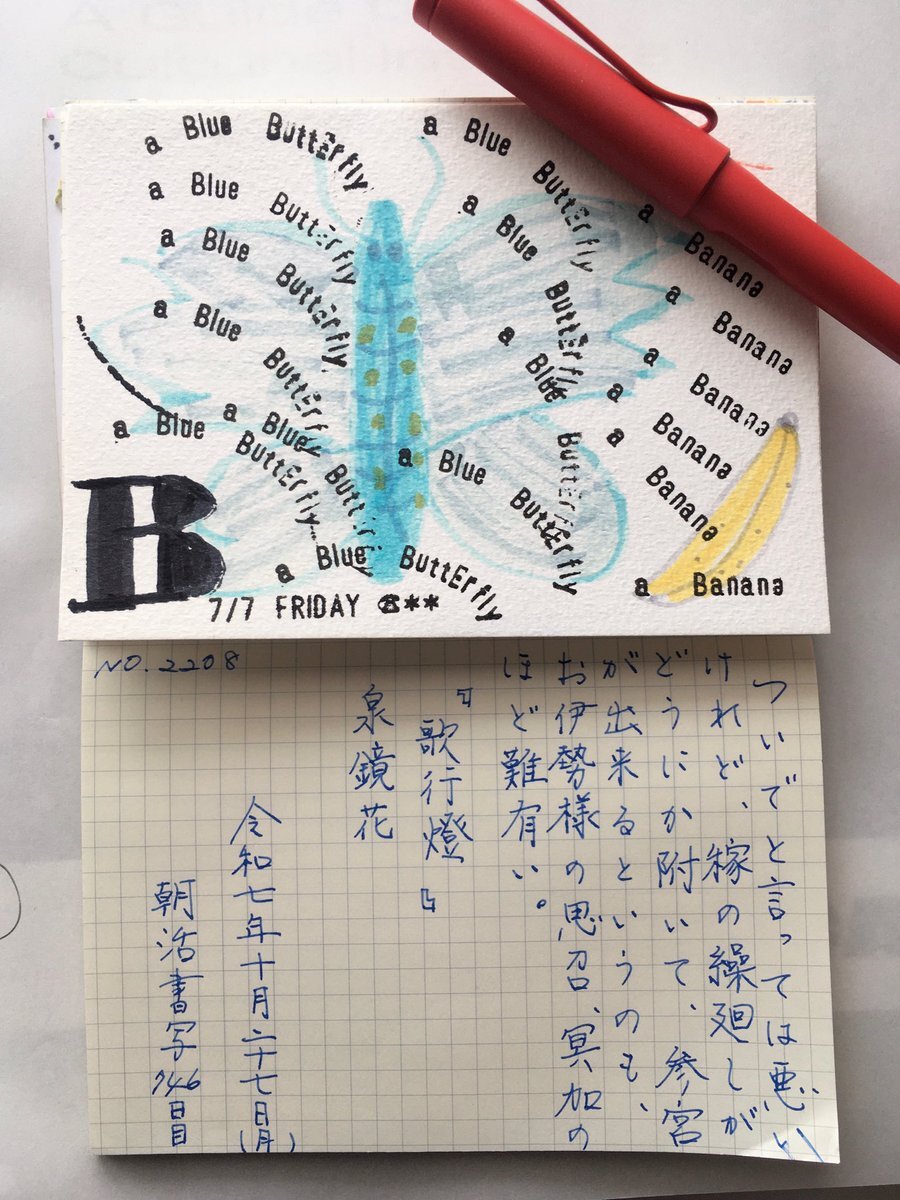 a Blue ButtErfly
a Blue ButtErfly
a Blue ButtErfly
a Blue ButtErfly
a Blue ButtErfly
a Blue ButtErfly
a Blue ButtErfly
a Blue ButtErfly
a Blue ButtErfly
a Blue ButtErfly
a Blue ButtErfly
a Banana
a Banana
a Banana
a Banana
a Banana
a Banana
B
7/7 FRIDAY ☎**
NO.2208
ついでと言っては悪い
けれど、稼の繰廻しが
どうにか附いて、参宮
が出来るというのも、
お伊勢様の思召、冥加の
ほど難有い。
『歌行燈』
泉鏡花
令和七年十月二十七日(月)
朝活書写746日目